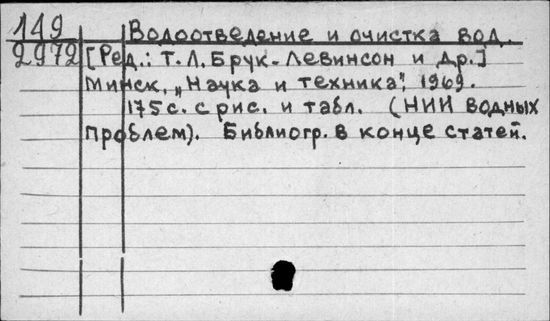 149 Водоотведение и очистка вод.
2972 [Ред.: Т.Л. Брук-Левинсон и др.]
Минск, „Наука и техника", 1969.
175 с. с рис. и табл. (НИИ водных
проблем). Библиогр. в конце статей.